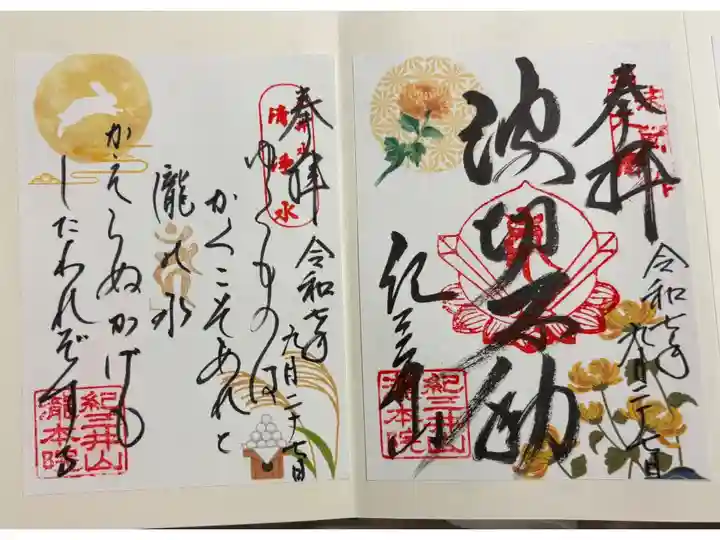 奉拝
波切不動
紀三井山
令和七年九月二十七日
紀三井山
瀧本院
奉拝
清浄水
令和七年九月二十七日
ゆくものは
かくこそあれと
瀧の水
かえらぬかげも
したわれぞする
紀三井山
瀧本院